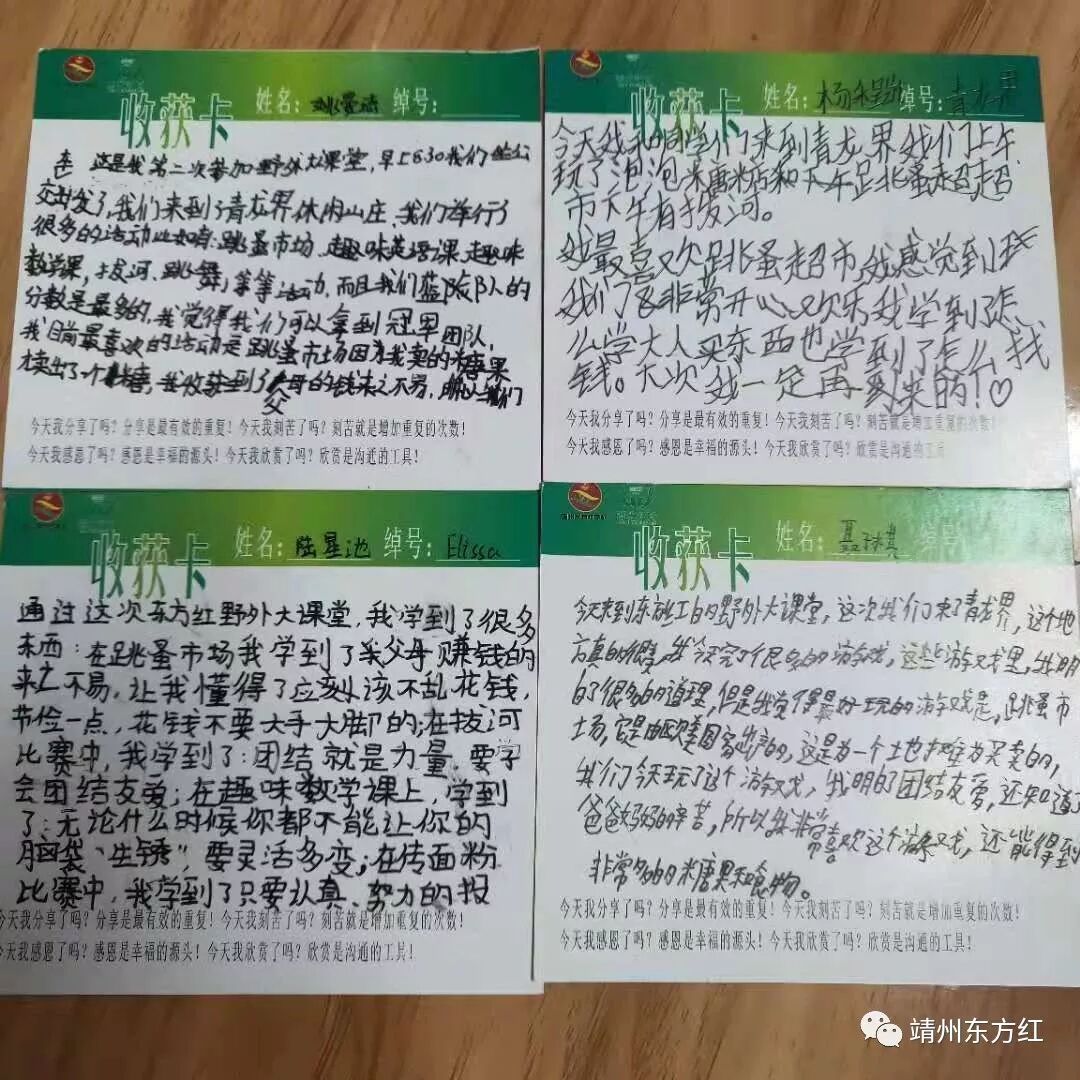 收获卡 姓名： 绰号：
这是我第二次参加野外大课堂，早上8:30我们坐公
交出发了，我们来到了青龙界休闲山庄、我们举行了
很多的活动比如有：跳蚤市场、趣味英语课、趣味
数学课，拔河、跳舞，等等活动，而且我们蓝队的
分数是最多的，我觉得我们可以拿到冠军团队，
我目前最喜欢的活动是跳蚤市场因为我卖的糖果
卖出了，我收获到了父母的钱来之不易，
今天我分享了吗？分享是最有效的重复！今天我刻苦了吗？刻苦就是增加重复的次数！
今天我感恩了吗？感恩是幸福的源头！今天我欣赏了吗？欣赏是沟通的工具！
收获卡 姓名：杨 绰号：青龙界
今天我和同学们来到青龙界我们上午
玩了泡泡糖粘店和下午是跳蚤超超
市下午有拔河。
我最喜欢跳蚤超市，我感觉到
我们非常开心欢乐我学到了怎
么学大人买东西也学到了怎么找
钱。下次我一定再来的！♡
今天我分享了吗？分享是最有效的重复！今天我刻苦了吗？刻苦就是增加重复的次数！
今天我感恩了吗？感恩是幸福的源头！今天我欣赏了吗？欣赏是沟通的工具
收获卡 姓名：陆星池 绰号：Elissa
通过这次东方红野外大课堂，我学到了很多
东西：在跳蚤市场我学到了父母赚钱的
来之不易，让我懂得了应该不乱花钱，
节俭一点，花钱不要大手大脚的；在拔河
比赛中，我学到了：团结就是力量，要学
会团结友爱；在趣味数学课上，学到
了：无论什么时候你都不能让你的
脑袋“生锈”，要灵活多变；在传面粉
比赛中，我学到了只要认真、努力的报
今天我分享了吗？分享是最有效的重复！今天我刻苦了吗？刻苦就是增加重复的次数！
今天我感恩了吗？感恩是幸福的源头！今天我欣赏了吗？欣赏是沟通的工具！
收获卡 姓名：聂 绰号：
今天来到东方红的野外大课堂，这次我们来了青龙界，这个地
方真的很，我今天玩了很多的游戏，这些游戏里，我明
白了很多的道理，但是我觉得最好玩的游戏是，跳蚤市
场，它是由欧美国家出产的，这是为一个土地摊为买卖的，
我们今天玩了这个游戏，我明白了团结友爱，还知道了
爸爸妈妈的辛苦，所以我非常喜欢这个游戏，还能得到
非常多的糖果和食物。
今天我分享了吗？分享是最有效的重复！今天我刻苦了吗？刻苦就是增加重复的次数！
今天我感恩了吗？感恩是幸福的源头！今天我欣赏了吗？欣赏是沟通的工具！
靖州东方红